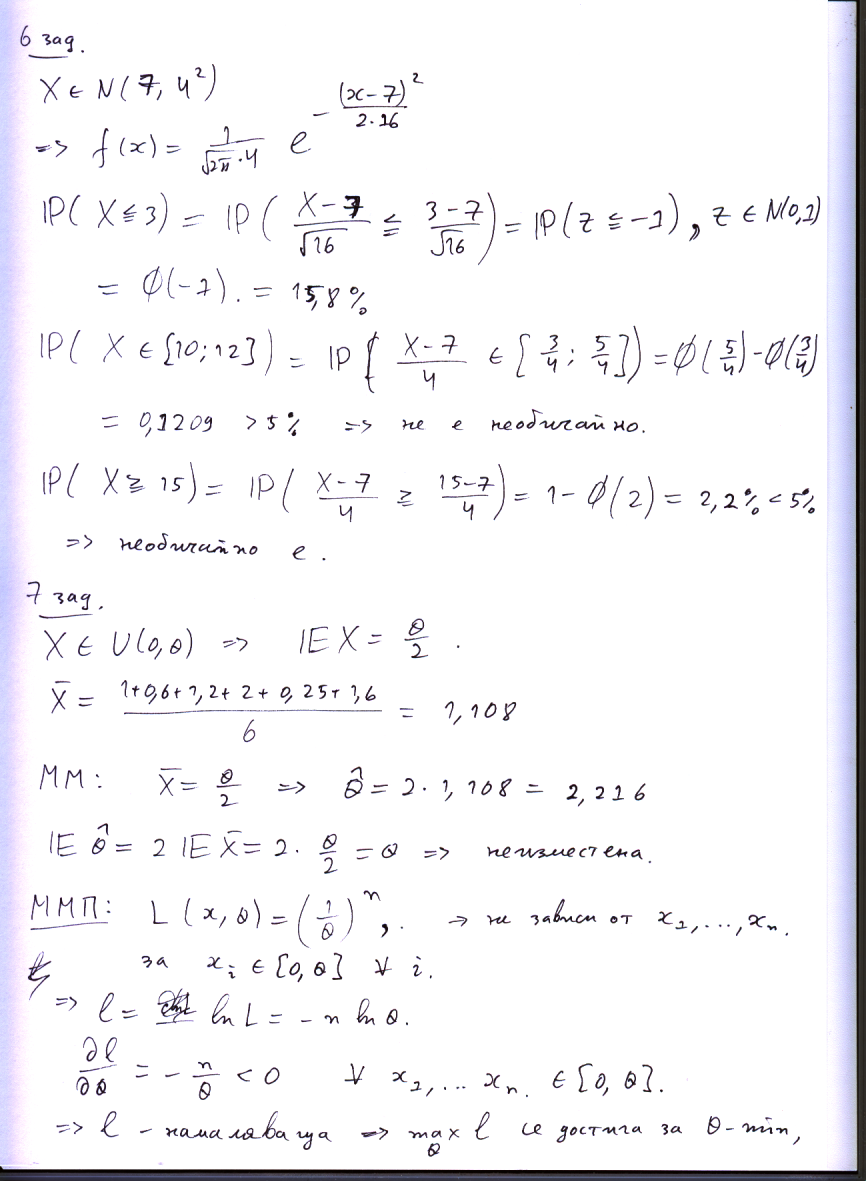 6 зад.
X ∈ N(7, 4²)
=> f(x) = 1/(√2π·4) e^(-(x-7)²/(2·16))
IP(X ≤ 3) = IP((X-7)/√16 ≤ (3-7)/√16) = IP(Z ≤ -1), Z ∈ N(0,1)
= Φ(-1). = 15,8%
IP(X ∈ [10;12]) = IP((X-7)/4 ∈ [3/4; 5/4]) = Φ(5/4) - Φ(3/4)
= 0,1209 > 5% => не е необичайно.
IP(X ≥ 15) = IP((X-7)/4 ≥ (15-7)/4) = 1 - Φ(2) = 2,2% < 5%
=> необичайно е.
7 зад.
X ∈ U(0,θ) => IE X = θ/2.
X̄ = (1+0,6+1,2+2+0,25+1,6)/6 = 1,108
ММ: X̄ = θ/2 => θ̂ = 2·1,108 = 2,216
IE θ̂ = 2 IE X̄ = 2·θ/2 = θ => неизместена.
ММП: L(x,θ) = (1/θ)ⁿ, → не зависи от x₁,...,xₙ.
за xᵢ ∈ [0,θ] ∀ i.
=> l = ln L = -n ln θ.
∂l/∂θ = -n/θ < 0 ∀ x₁,... xₙ. ∈ [0,θ].
=> l - намаляваща => max_θ l се достига за θ-min,